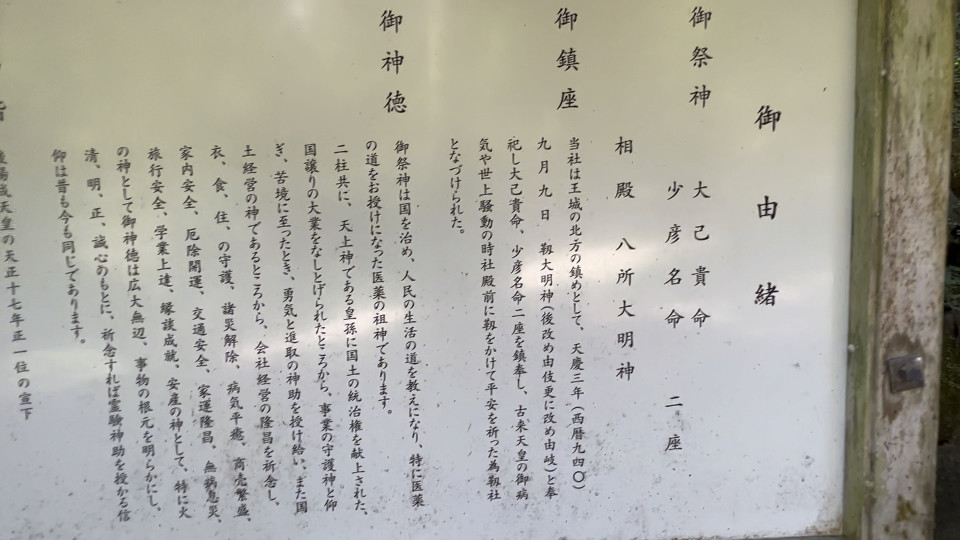 御由緒
御祭神　大己貴命
少彦名命　二座
相殿　八所大明神
御鎮座　当社は王城の北方の鎮めとして、天慶三年（西暦九四〇）
九月九日　靱大明神（後改め由伎更に改め由岐）と奉
祀し大己貴命、少彦名命二座を鎮奉し、古来天皇の御病
気や世上騒動の時社殿前に靱をかけて平安を祈った為靱社
となづけられた。
御神徳　御祭神は国を治め、人民の生活の道を教えになり、特に医薬
の道をお授けになった医薬の祖神であります。
二柱共に、天上神である皇孫に国土の統治権を献上された、
国譲りの大業をなしとげられたところから、事業の守護神と仰
ぎ、苦境に至ったとき、勇気と進取の神助を授け給い、また国
土経営の神であるところから、会社経営の隆昌を祈念し、
衣、食、住、の守護、諸災解除、病気平癒、商売繁盛、
家内安全、厄除開運、交通安全、家運隆昌、無病息災、
旅行安全、学業上達、縁談成就、安産の神として、特に火
の神として御神徳は広大無辺、事物の根元を明らかにし、
清、明、正、誠心のもとに、祈念すれば霊験神助を授かる信
仰は昔も今も同じであります。
陽成天皇の天正十七年正一位の宣下